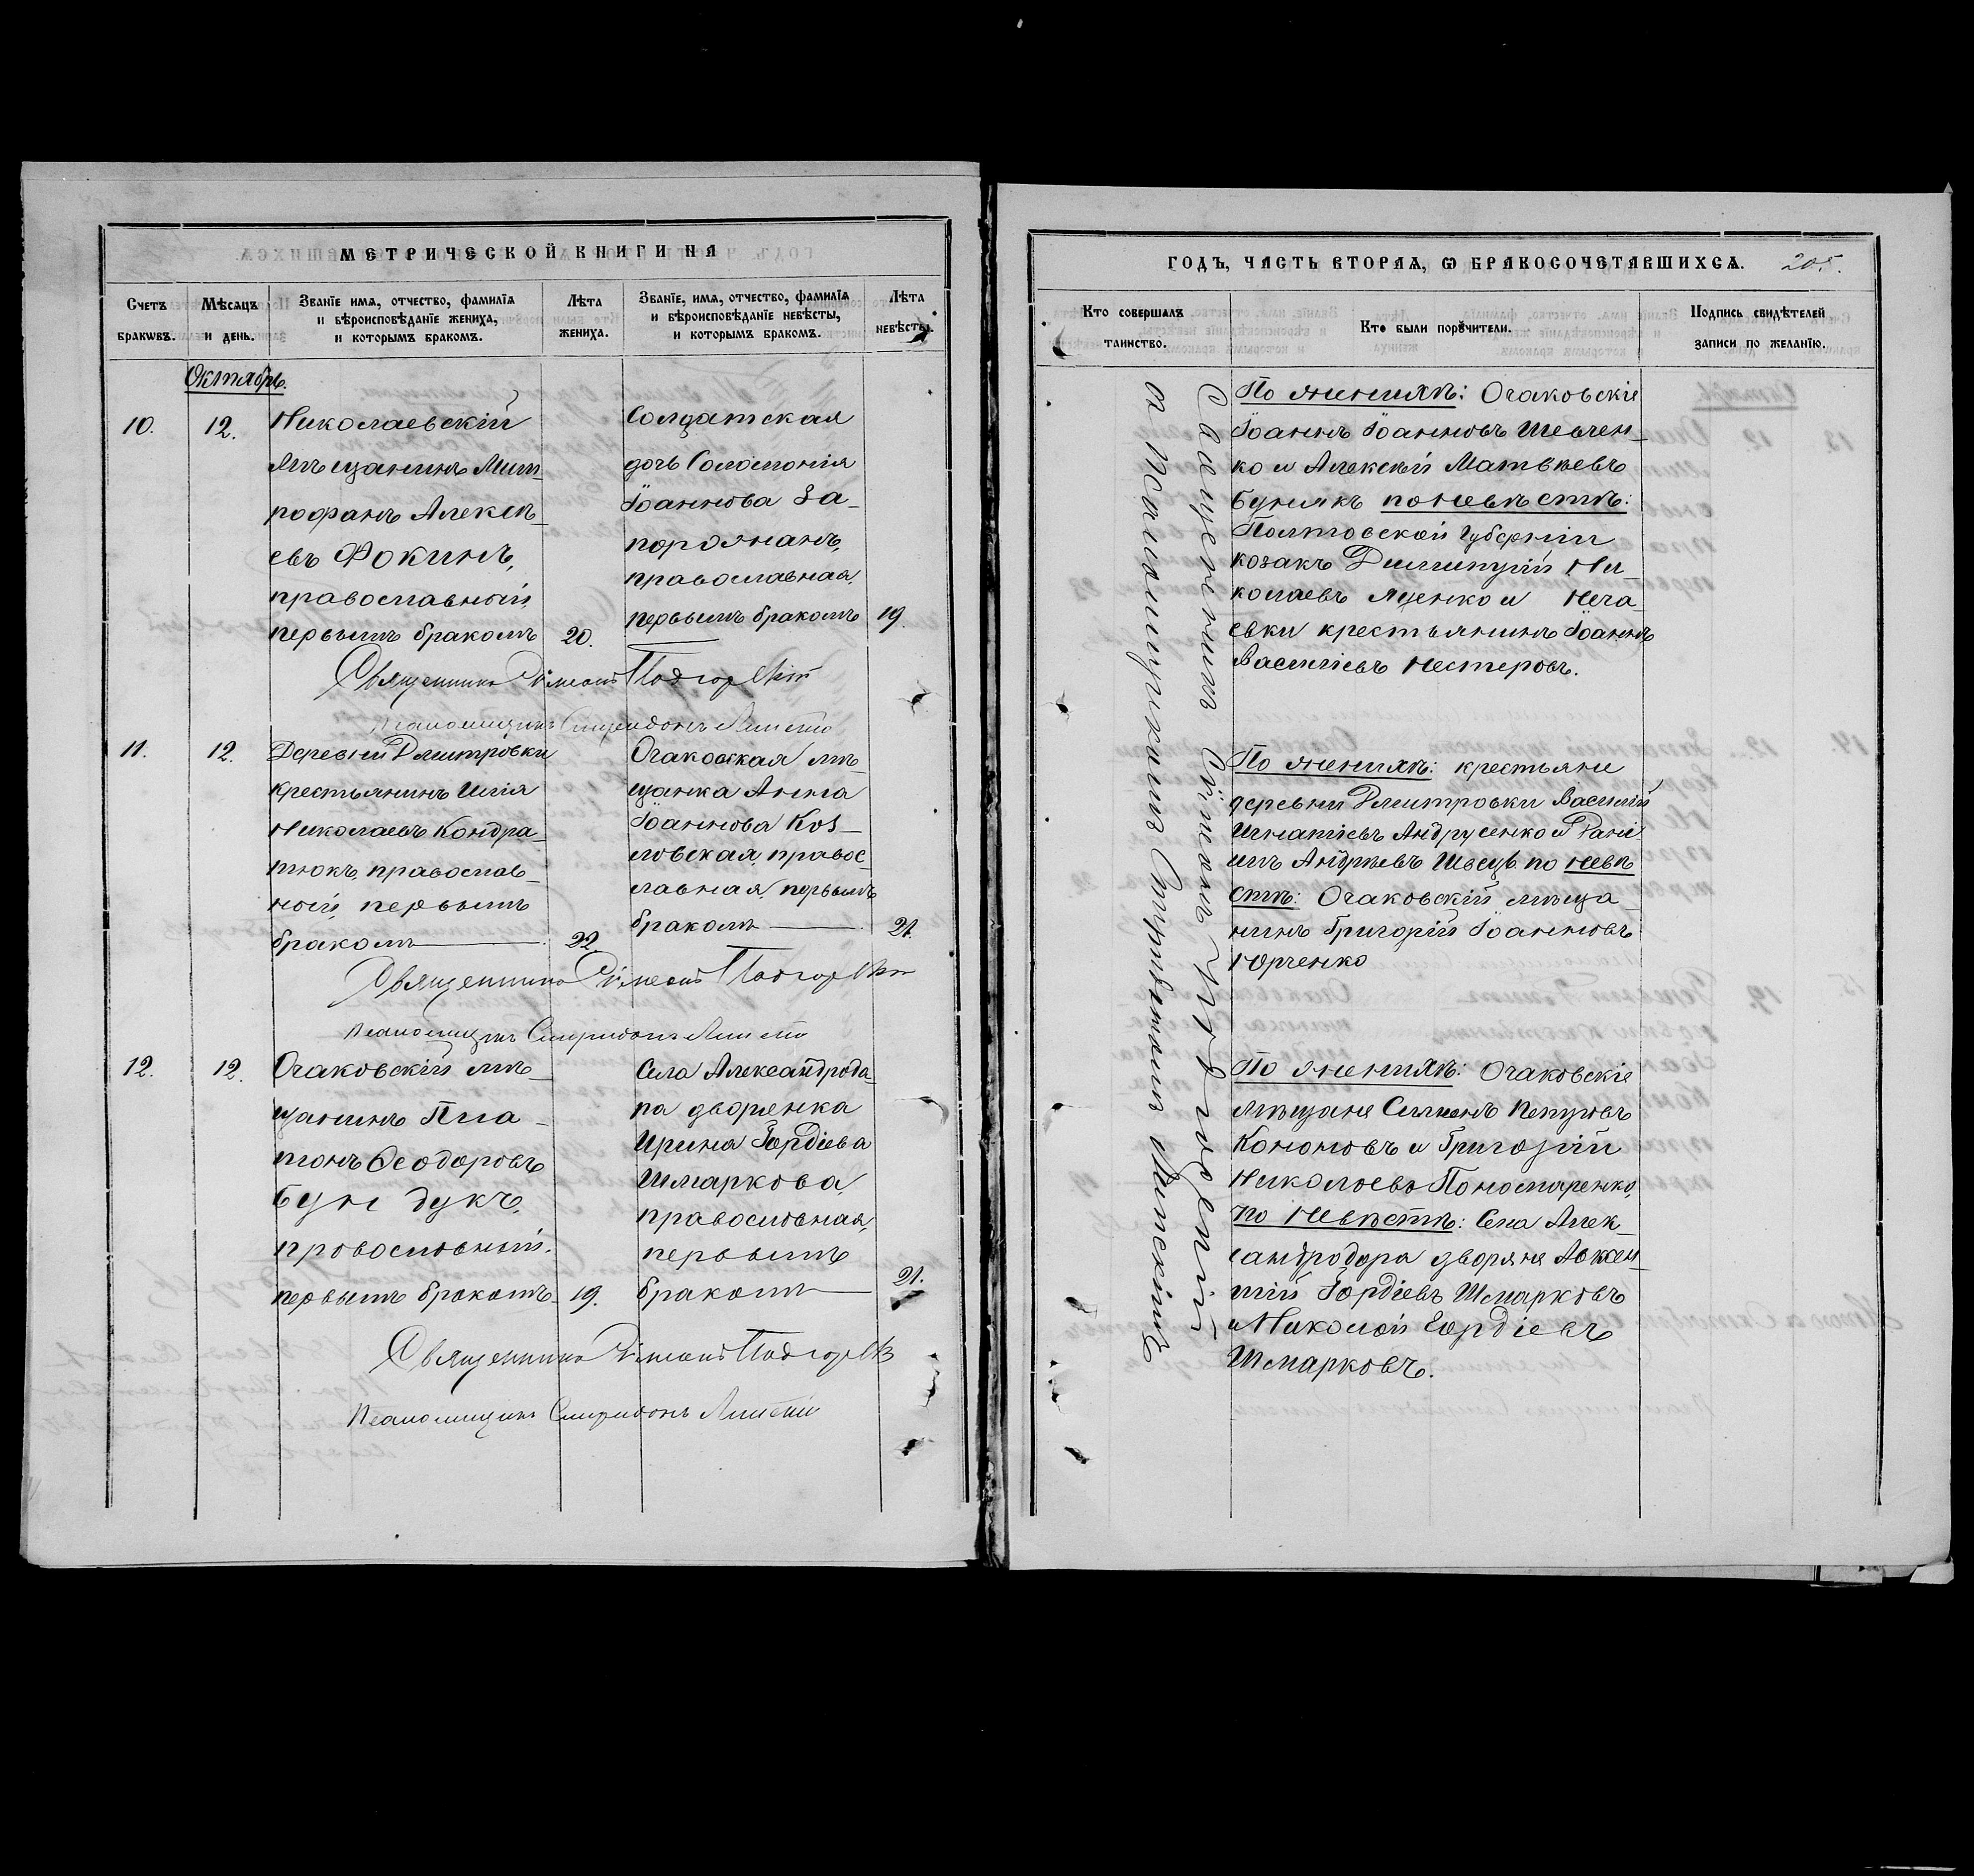 МЕТРИЧЕСКОЙ КНИГИ НА
Счетъ браковъ.
Мѣсяцъ и день.
Званїе имѧ, отчество, фамилїѧ
и вѣроисповѣданїе жениха,
и которымъ бракомъ.
Лѣта
жениха.
Званїе, имѧ, отчество, фамилїѧ
и вѣроисповѣданїе невѣсты,
и которымъ бракомъ.
Лѣта
невѣсты.
Октябрь.
10.
12.
Николаевскій
мѣщанинъ Мит-
рофанъ Алексѣ-
евъ Фокинъ,
православный,
первымъ бракомъ
20.
Солдатская
дочь Соломонія
Іоаннова За-
порожанъ,
православная,
первымъ бракомъ
19.
Священникъ Сімеонъ
Псаломщикъ Спиридонъ
11.
12.
Деревни Дмитровки
крестьянинъ Илія
Николаевъ Кондра-
тюкъ, православ-
ный, первымъ
бракомъ
22.
Очаковская мѣ-
щанка Анна
Іоаннова Коз-
ловская, правос-
лавная, первымъ
бракомъ
21.
Священникъ Сімеонъ
Псаломщикъ Спиридонъ
12.
12.
Очаковскій мѣ-
щанинъ Пла-
тонъ Ѳеодоровъ
Бундукъ,
православный.
первымъ бракомъ
19.
Села Александрода-
ра дворянка
Ирина Гордіева
Шмаркова,
православная,
первымъ
бракомъ
21.
Священникъ Сімеонъ
Псаломщикъ Спиридонъ
ГОДЪ, ЧАСТЬ ВТОРАѦ, Ѡ БРАКОСОЧЕТАВШИХСѦ.
205.
Кто совершалъ
таинство.
Кто были порꙋчители.
Подпись свидѣтелей
записи по желанїю.
Священникъ Сімеонъ
съ псаломщикомъ Спиридономъ
По женихѣ: Очаковскіе
Іоаннъ Іоанновъ Шевчен-
ко и Алексѣй Матвѣевъ
Бунякъ по невѣстѣ:
Полтовской губерніи
козакъ Димитрій Ни-
колаевъ Яценко и Неча-
евки крестьянинъ Іоаннъ
Василіевъ Нестеровъ.
По женихѣ: крестьяне
деревни Дмитровки Василій
Игнатіевъ Андрусенко и Дані-
илъ Андреевъ Швецъ по невѣ
стѣ: Очаковскій мѣща-
нинъ Григорій Іоанновъ
Юрченко
По женихѣ: Очаковскіе
мѣщане Симеонъ
Кононовъ и Григорій
Николаевъ Пономаренко,
по невѣстѣ: Села Алек-
сандродара дворяне Авксен-
тій Гордіевъ Шмарковъ
и Николай Гордіевъ
Шмарковъ.